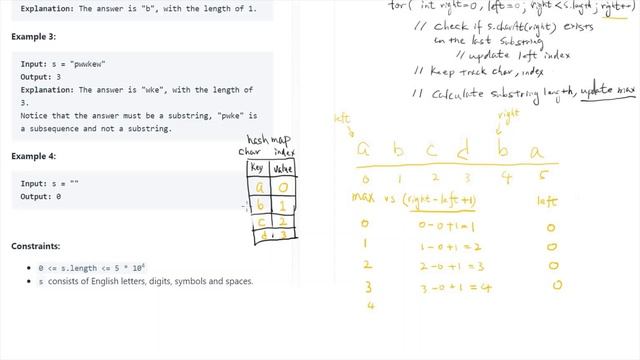 Explanation: The answer is "b", with the length of 1.
Example 3:
Input: s = "pwwkew"
Output: 3
Explanation: The answer is "wke", with the length of
3.
Notice that the answer must be a substring, "pwke" is
a subsequence and not a substring.
Example 4:
Input: s = ""
Output: 0
Constraints:
0 <= s.length <= 5 * 10⁴
s consists of English letters, digits, symbols and spaces.
hash map
char index
Key value
a 0
b 1
c 2
d 3
for ( int right=0, left=0; right < s.length; right++)
// check if s.charAt(right) exists
in the last substring
// update left index
// Keep track char, index
// Calculate substring length, update max
left right
a b c d b a
0 1 2 3 4 5
max vs (right-left+1) left
0 0-0+1=1 0
1 1-0+1=2 0
2 2-0+1=3 0
3 3-0+1=4 0
4